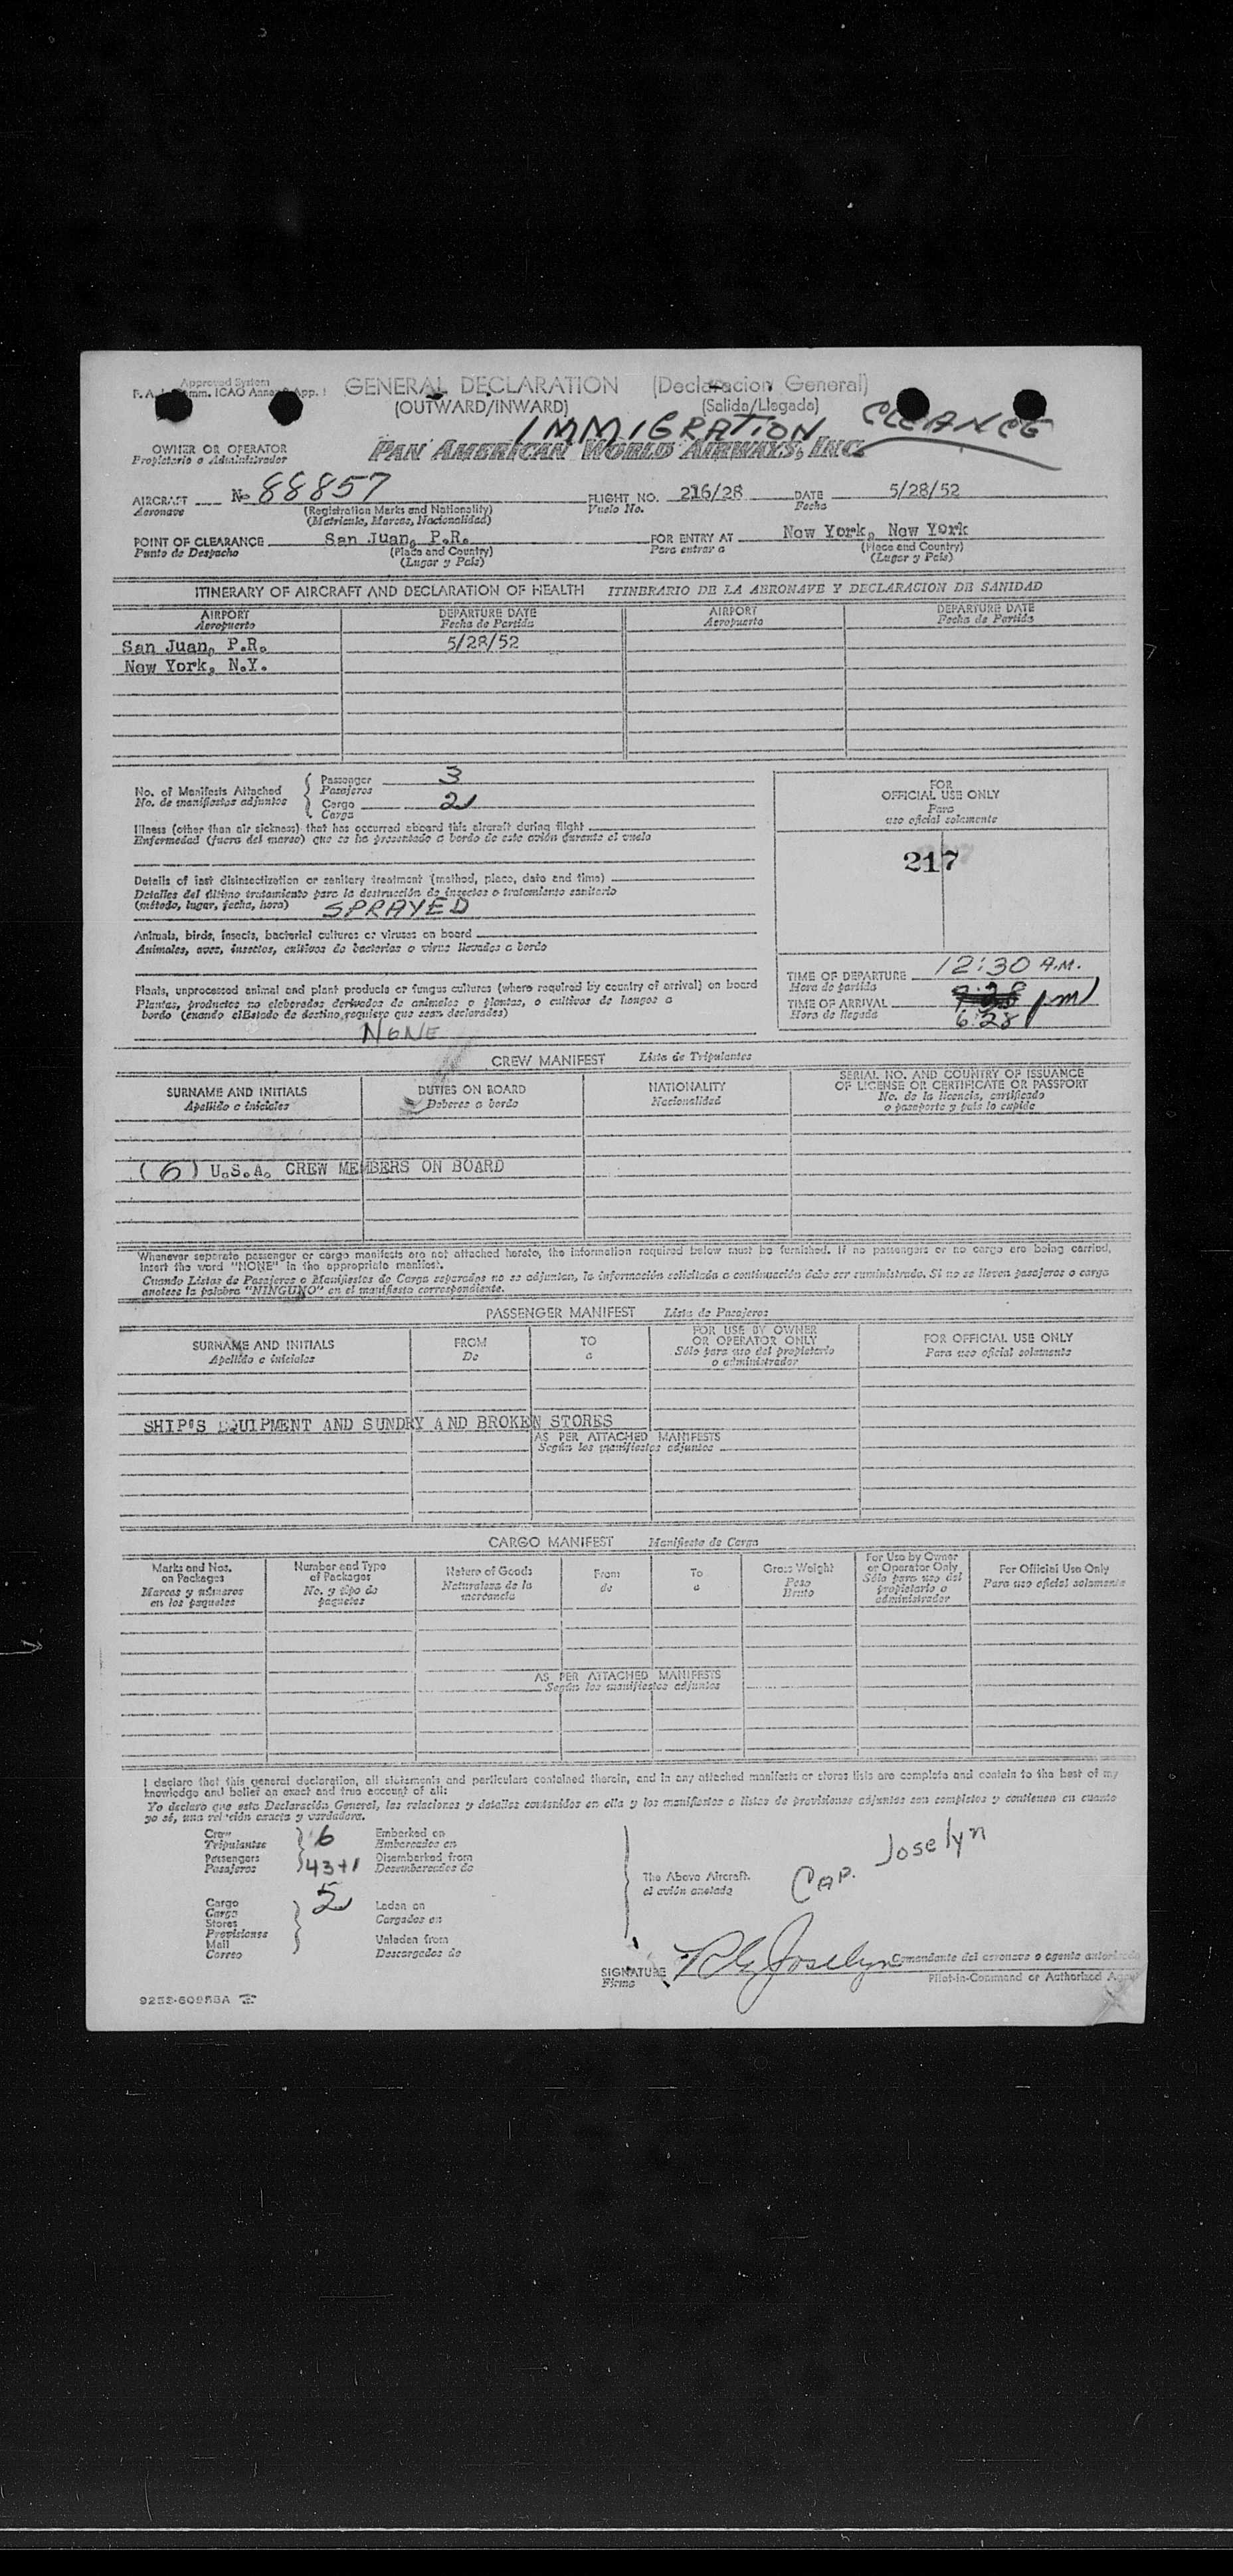 Approved System
GENERAL DECLARATION (Declaracion General)
(OUTWARD/INWARD) (Salida/Llegada)
IMMIGRATION CLEANCE
OWNER OR OPERATOR PAN AMERICAN WORLD AIRWAYS, INC.
Propietario o Administrador
AIRCRAFT No 88857 FLIGHT NO. 216/28 DATE 5/28/52
Aeronave (Registration Marks and Nationality) Vuelo No. Fecha
(Matricula, Marcas, Nacionalidad)
POINT OF CLEARANCE San Juan, P.R. FOR ENTRY AT New York, New York
Punto de Despacho (Place and Country) Para entrar a (Place and Country)
(Lugar y Pais) (Lugar y Pais)
ITINERARY OF AIRCRAFT AND DECLARATION OF HEALTH ITINERARIO DE LA AERONAVE Y DECLARACION DE SANIDAD
AIRPORT DEPARTURE DATE AIRPORT DEPARTURE DATE
Aeropuerto Fecha de Partida Aeropuerto Fecha de Partida
San Juan, P.R. 5/28/52
New York, N.Y.
No. of Manifests Attached Passenger 3
No. de manifiestos adjuntos Pasajeros
Cargo 2
Carga
Illness (other than air sickness) that has occurred aboard this aircraft during flight
Enfermedad (fuera del mareo) que se ha presentado a bordo de este avión durante el vuelo
Details of last disinsectization or sanitary treatment (method, place, date and time)
Detalles del último tratamiento para la destrucción de insectos o tratamiento sanitario
(método, lugar, fecha, hora) SPRAYED
Animals, birds, insects, bacterial cultures or viruses on board
Animales, aves, insectos, cultivos de bacterias o virus llevados a bordo
Plants, unprocessed animal and plant products or fungus cultures (where required by country of arrival) on board
Plantas, productos no elaborados derivados de animales o plantas, o cultivos de hongos a
bordo (cuando el Estado de destino requiere que sean declarados)
NONE
FOR
OFFICIAL USE ONLY
Para
uso oficial solamente
217
TIME OF DEPARTURE 12:30 A.M.
Hora de partida
TIME OF ARRIVAL pm
Hora de llegada 6:28
CREW MANIFEST Lista de Tripulantes
SURNAME AND INITIALS DUTIES ON BOARD NATIONALITY SERIAL NO. AND COUNTRY OF ISSUANCE
OF LICENSE OR CERTIFICATE OR PASSPORT
Apellido e iniciales Deberes a bordo Nacionalidad No. de la licencia, certificado
o pasaporte y pais lo expide
(6) U.S.A. CREW MEMBERS ON BOARD
Whenever separate passenger or cargo manifests are not attached hereto, the information required below must be furnished. If no passengers or no cargo are being carried,
insert the word "NONE" in the appropriate manifest.
Cuando Listas de Pasajeros o Manifiestos de Carga separados no se adjuntan, la información solicitada a continuación debe ser suministrada. Si no se lleven pasajeros o carga
anotese la palabra "NINGUNO" en el manifiesto correspondiente.
PASSENGER MANIFEST Lista de Pasajeros
SURNAME AND INITIALS FROM TO FOR USE BY OWNER OR OPERATOR ONLY FOR OFFICIAL USE ONLY
Apellido e iniciales De a Sólo para uso del propietario o administrador Para uso oficial solamente
SHIP'S EQUIPMENT AND SUNDRY AND BROKEN STORES
AS PER ATTACHED MANIFESTS
Según los manifiestos adjuntos
CARGO MANIFEST Manifiesto de Carga
Marks and Nos. on Packages Number and Type of Packages Nature of Goods From To Gross Weight For Use by Owner or Operator Only For Official Use Only
Marcas y números en los paquetes No. y tipo de paquetes Naturaleza de la mercancia de a Peso Bruto Sólo para uso del propietario o administrador Para uso oficial solamente
AS PER ATTACHED MANIFESTS
Según los manifiestos adjuntos
I declare that this general declaration, all statements and particulars contained therein, and in any attached manifests or stores lists are complete and contain to the best of my
knowledge and belief an exact and true account of all:
Yo declaro que esta Declaración General, las relaciones y detalles contenidos en ella y los manifiestos o listas de provisiones adjuntos son completos y contienen en cuanto
yo sé, una relación exacta y verdadera.
Crew 6 Embarked on
Tripulantes Embarcados en
Passengers 43+1 Disembarked from
Pasajeros Desembarcados de
Cargo 5 Laden on
Carga Cargados en
Stores
Provisiones
Mail Unladen from
Correo Descargados de
The Above Aircraft.
el avión anotado
Cap. Joselyn
SIGNATURE R G Joselyn Comandante del aeronave o agente autorizado
Firma Pilot-in-Command or Authorized Agent